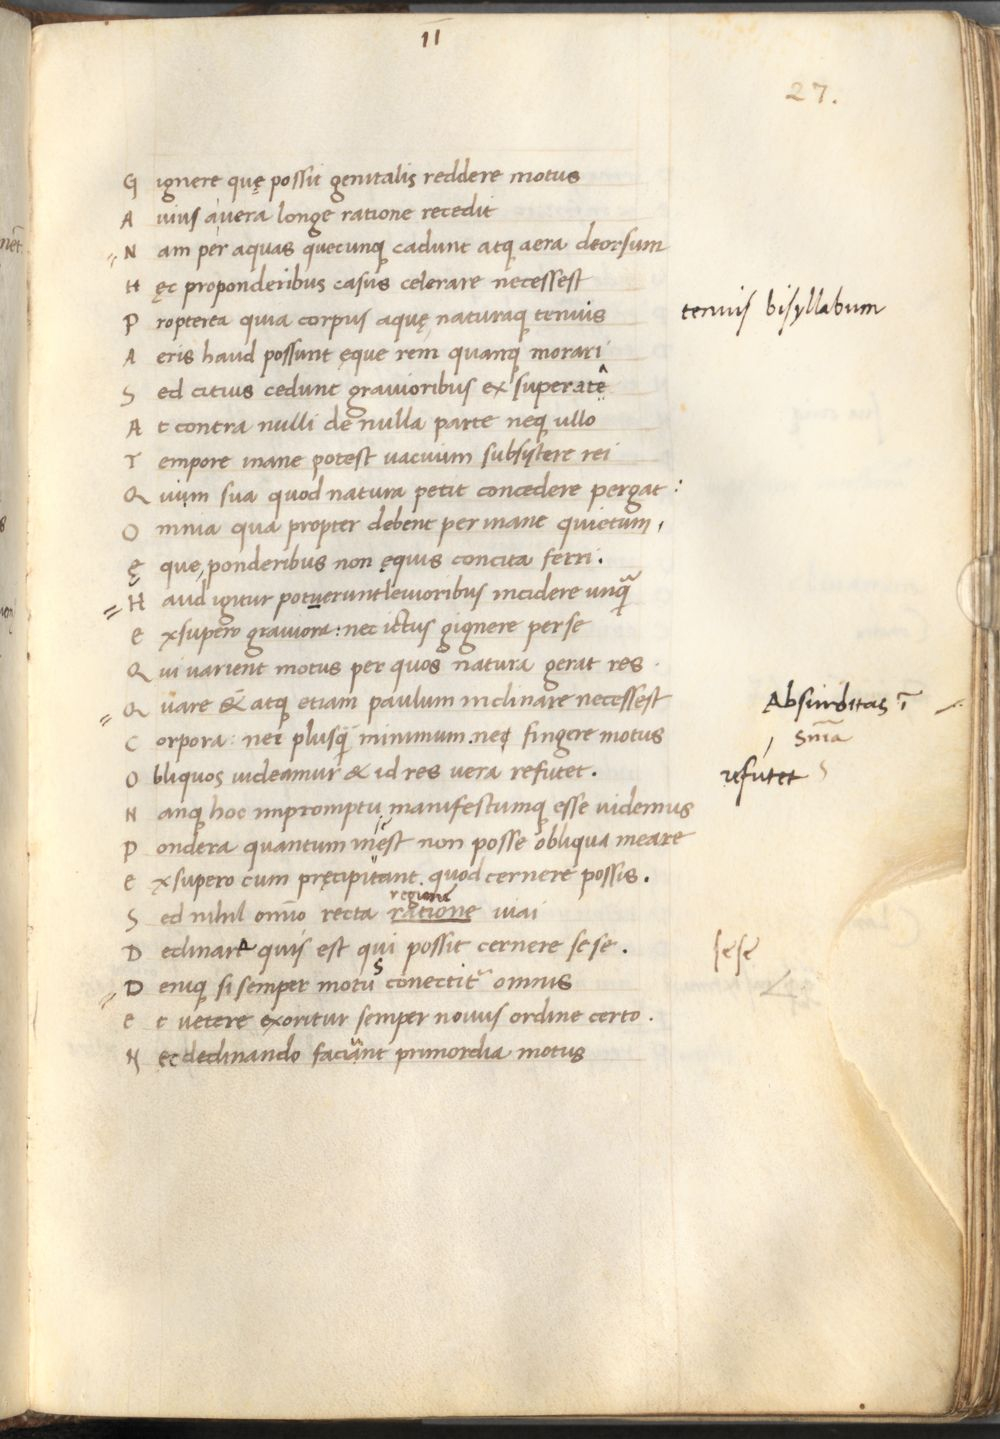 II
27.
G ignere quę possit genitalis reddere motus
A uius a uera longe ratione recedit
N am per aquas quecunq cadunt atq aera deorsum
H ęc proponderibus casus celerare necessest
P ropterea quia corpus aquę naturaq tenuis
tenuis bisyllabum
A eris haud possunt ęque rem quanq morari
S ed citius cedunt grauioribus exsuperatę
A t contra nulli de nulla parte neq ullo
T empore inane potest uacuum subsistere rei
Q uium sua quod natura petit concedere pergat :
O mnia qua propter debent per inane quietum,
Ę que ponderibus non ęquis concita ferri.
H aud igitur potuerunt leuioribus incidere unq̃
E xsupero grauiora: nec ictus gignere perse
Q ui uarient motus per quos natura gerat res.
Q uare & atq etiam paulum inclinare necessest
Absurditas ĩ
C orpora: nec plusq̃ minimum. neq fingere motus
Snĩa
O bliquos uideamur & id res uera refutet.
refutet
N anq hoc impromptu manifestumq esse uidemus
P ondera quantum inest non posse obliqua meare
E xsupero cum pręcipitant. quod cernere possis.
regione
S ed nihil omĩo recta ratione uiai
D eclinare quis est qui possit cernere sese.
sese
D eniq si semper motus conectit omnis
E t uetere exoritur semper nouus ordine certo.
N ec declinando faciunt primordia motus